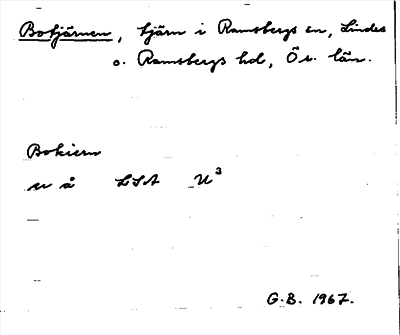 Botjärnen, tjärn i Ramsbergs sn, Lindes
o. Ramsbergs hd, Ör. län.
Bokiern
u å LSA U³
G.B. 1967.